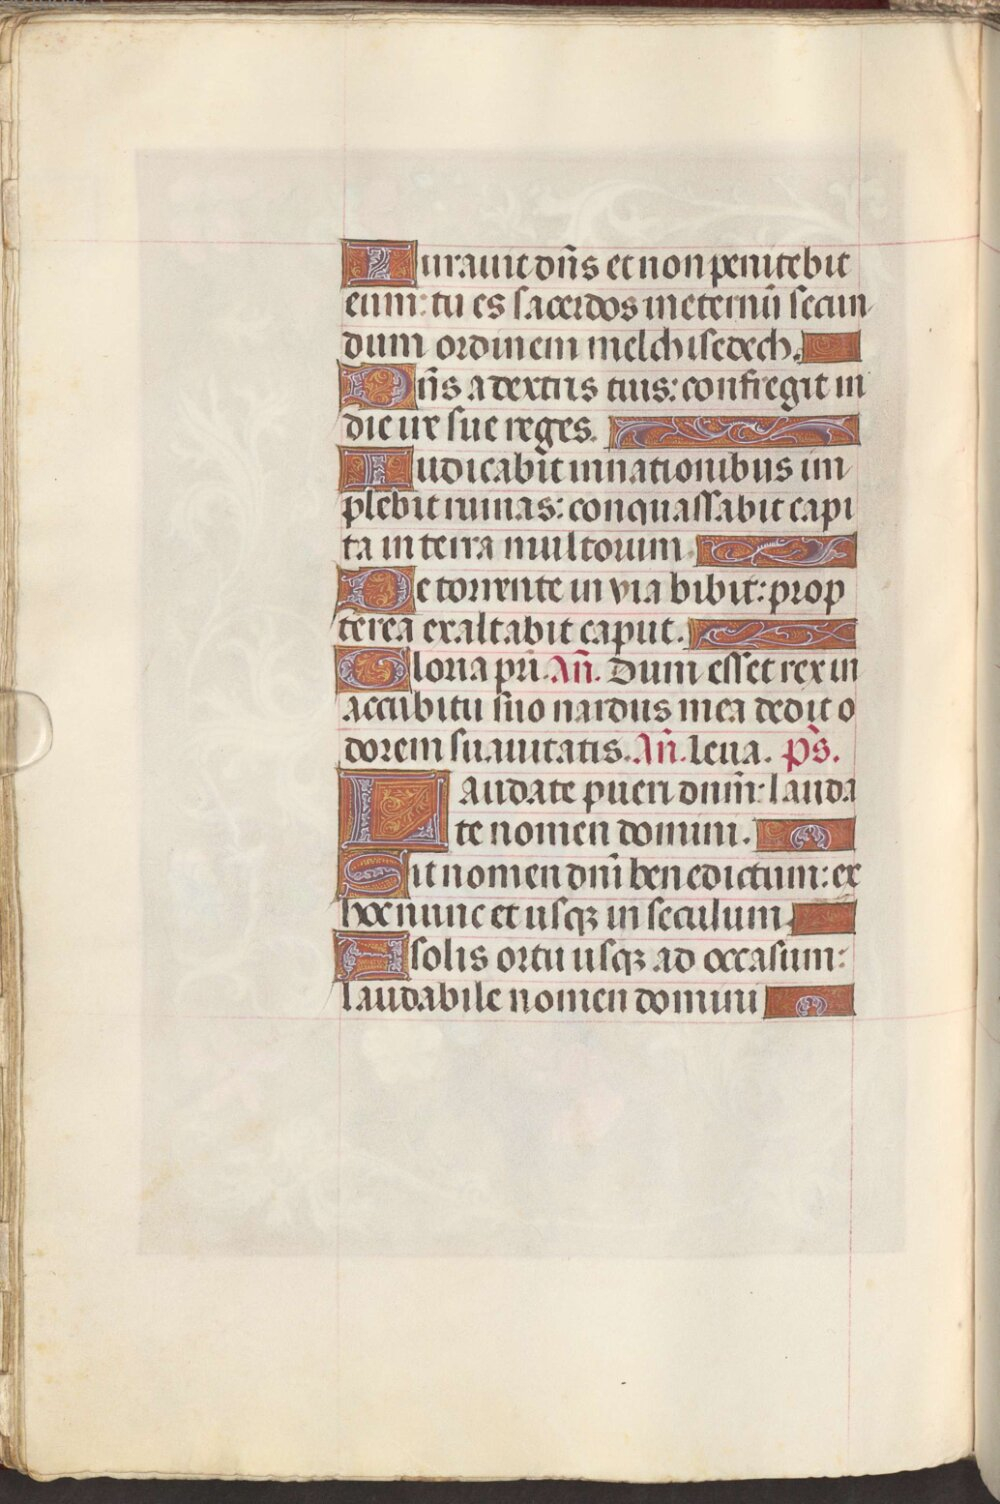 Iurauit dn̄s et non penitebit
eum: tu es sacerdos ineternū secun
dum ordinem melchisedech.
Dn̄s a dextris tuis: confregit in
die ire sue reges.
Iudicabit in nationibus im
plebit ruinas: conquassabit capi
ta in terra multorum.
De torrente in via bibit: prop
terea exaltabit caput.
Gloria pr̄i. An̄. Dum esset rex in
accubitu suo nardus mea dedit o
dorem suauitatis. An̄. Leua. Ps̄.
Laudate pueri dn̄m: lauda
te nomen domini.
Sit nomen dn̄i benedictum: ex
hoc nunc et usqꝫ in seculum.
A solis ortu usqꝫ ad occasum:
laudabile nomen domini